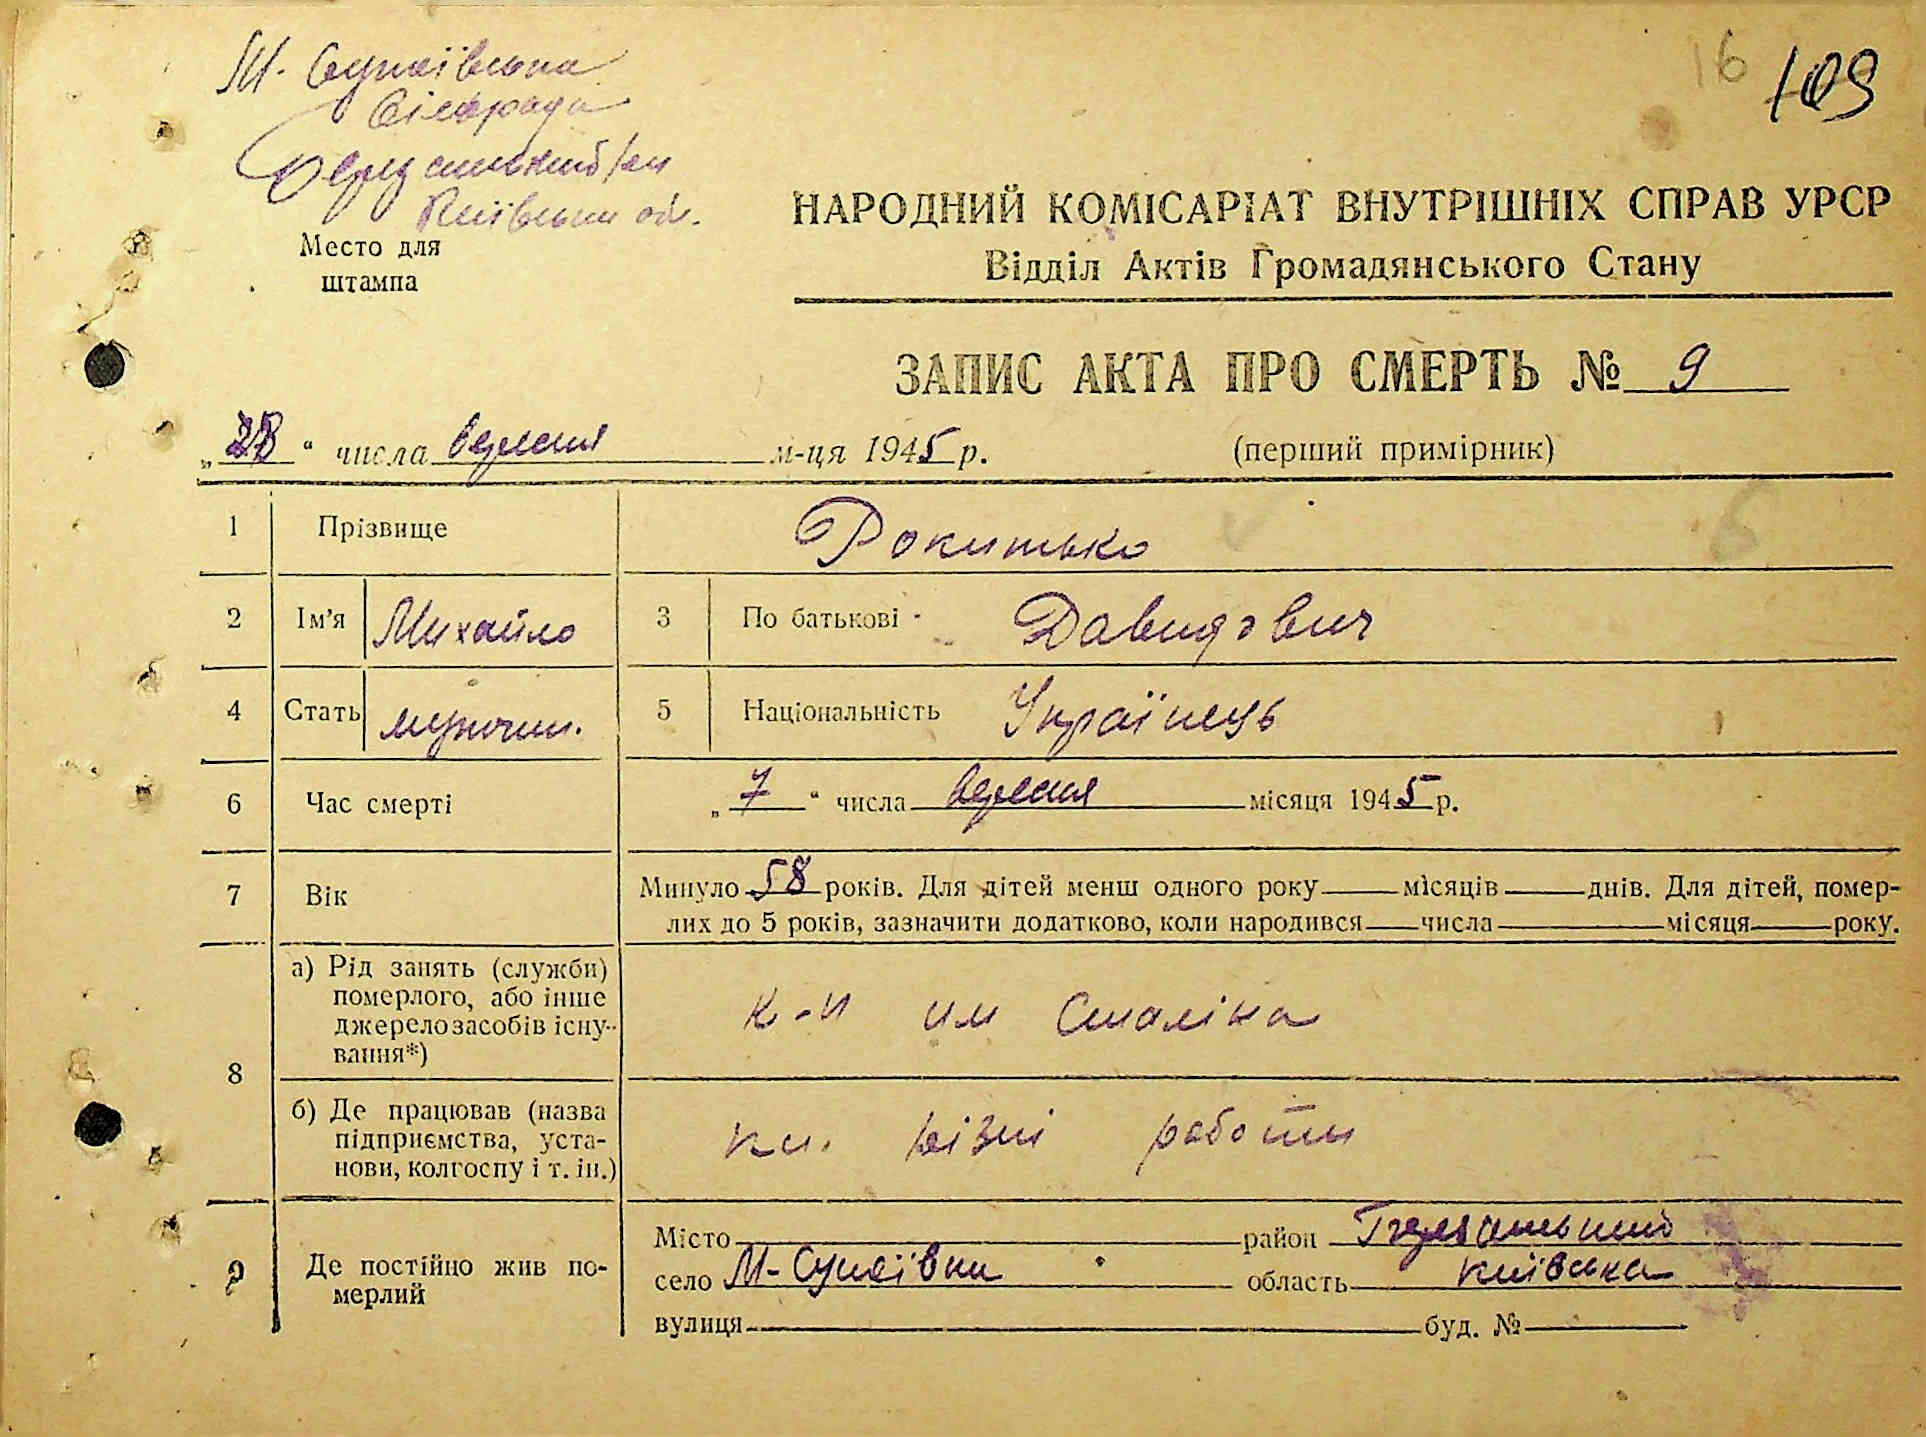 16 109
М. Супоївська
Сільрада
Березанський р-н
Київськи обл.
Место для
штампа
НАРОДНИЙ КОМІСАРІАТ ВНУТРІШНІХ СПРАВ УРСР
Відділ Актів Громадянського Стану
ЗАПИС АКТА ПРО СМЕРТЬ № 9
„28“ числа вересня м-ця 1945 р. (перший примірник)
1 Прізвище Рокитько
2 Ім’я Михайло 3 По батькові Давидович
4 Стать мужчин. 5 Національність Українець
6 Час смерті „7“ числа вересня місяця 1945 р.
7 Вік Минуло 58 років. Для дітей менш одного року місяців днів. Для дітей, помер-
лих до 5 років, зазначити додатково, коли народився числа місяця року.
8 а) Рід занять (служби)
померлого, або інше
джерело засобів існу-
вання*)
к-п им Сталіна
б) Де працював (назва
підприємства, уста-
нови, колгоспу і т. ін.)
різні работи
9 Де постійно жив по-
мерлий
Місто район Березанський
село М-Супоївка область Київська
вулиця буд. №